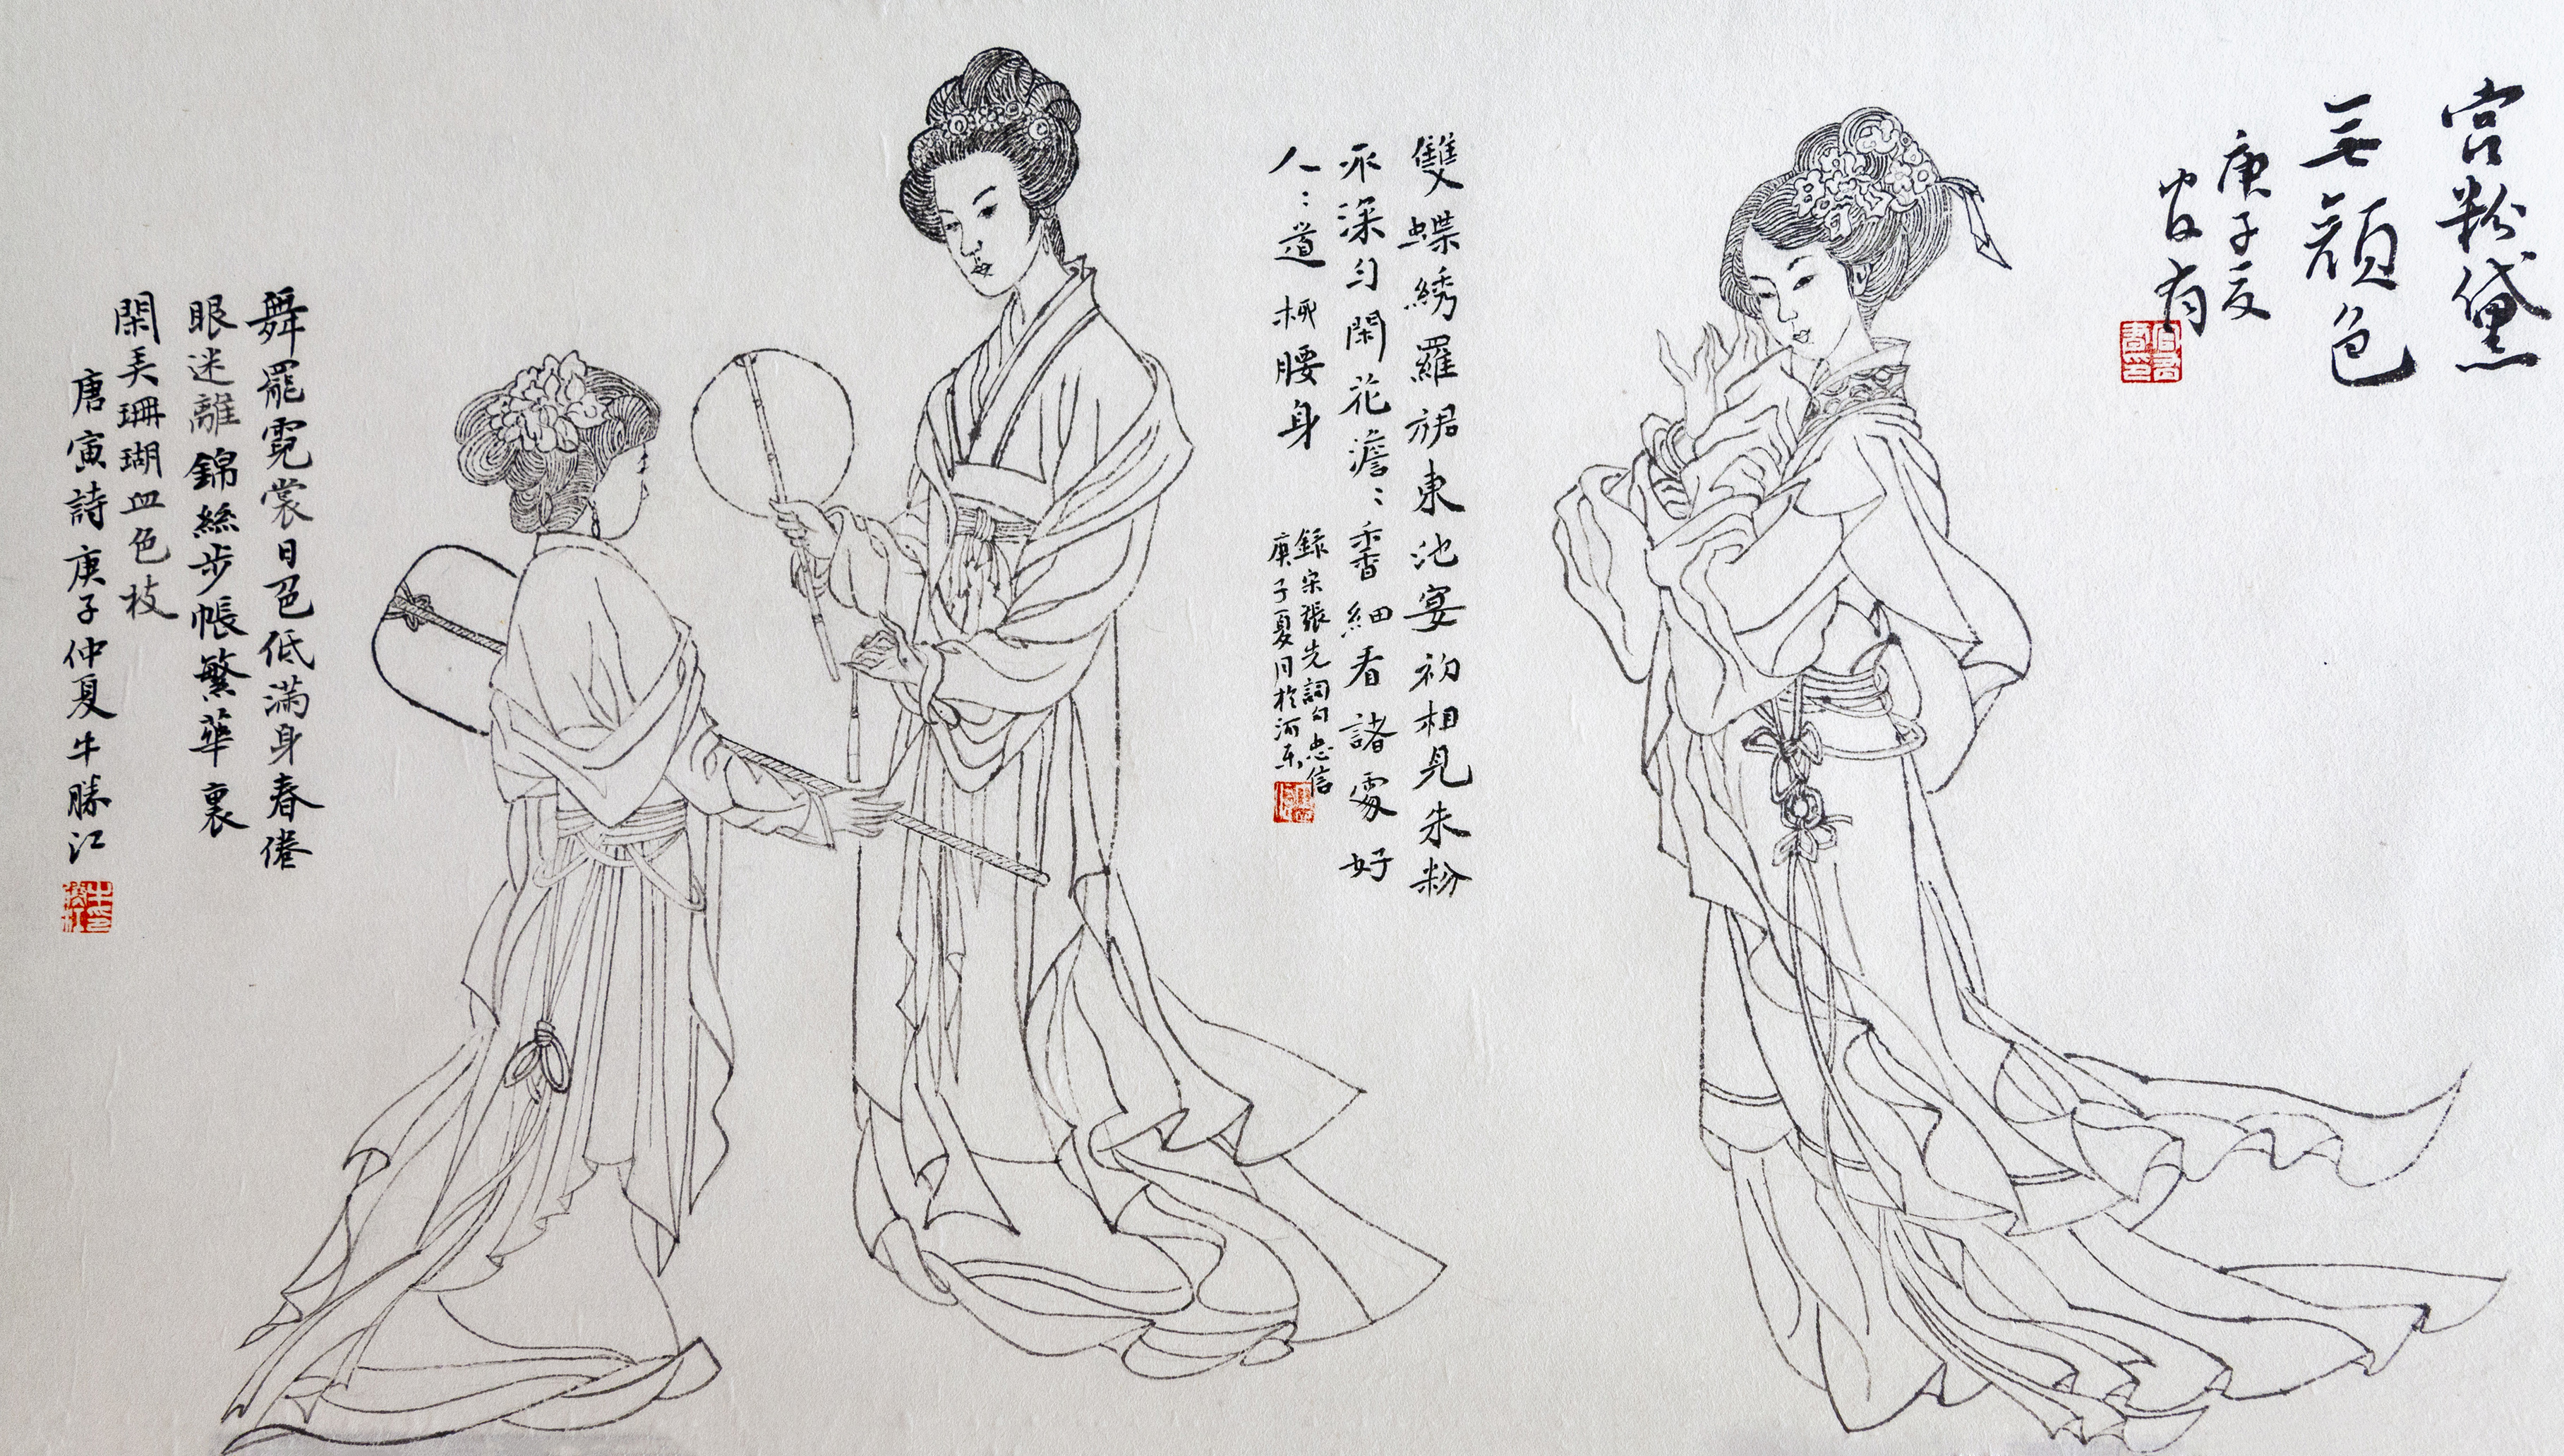 宫粉黛
无颜色
庚子夏
雙蝶绣羅裙東池宴初相見朱粉
不深匀閑花澹〻香細看諸處好
人〻道柳腰身
錄宋張先詞句忠信
庚子夏月於河东
舞罷霓裳日色低满身春倦
眼迷離錦絲步帳繁華裏
閑弄珊瑚血色枝
唐寅詩庚子仲夏牛勝江